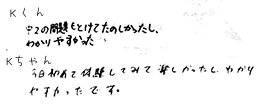 Kくん
中2の問題もとけてたのしかったし、
わかりやすかった
Kちゃん
今日初めて体験してみて楽しかったし、わかり
やすかったです。